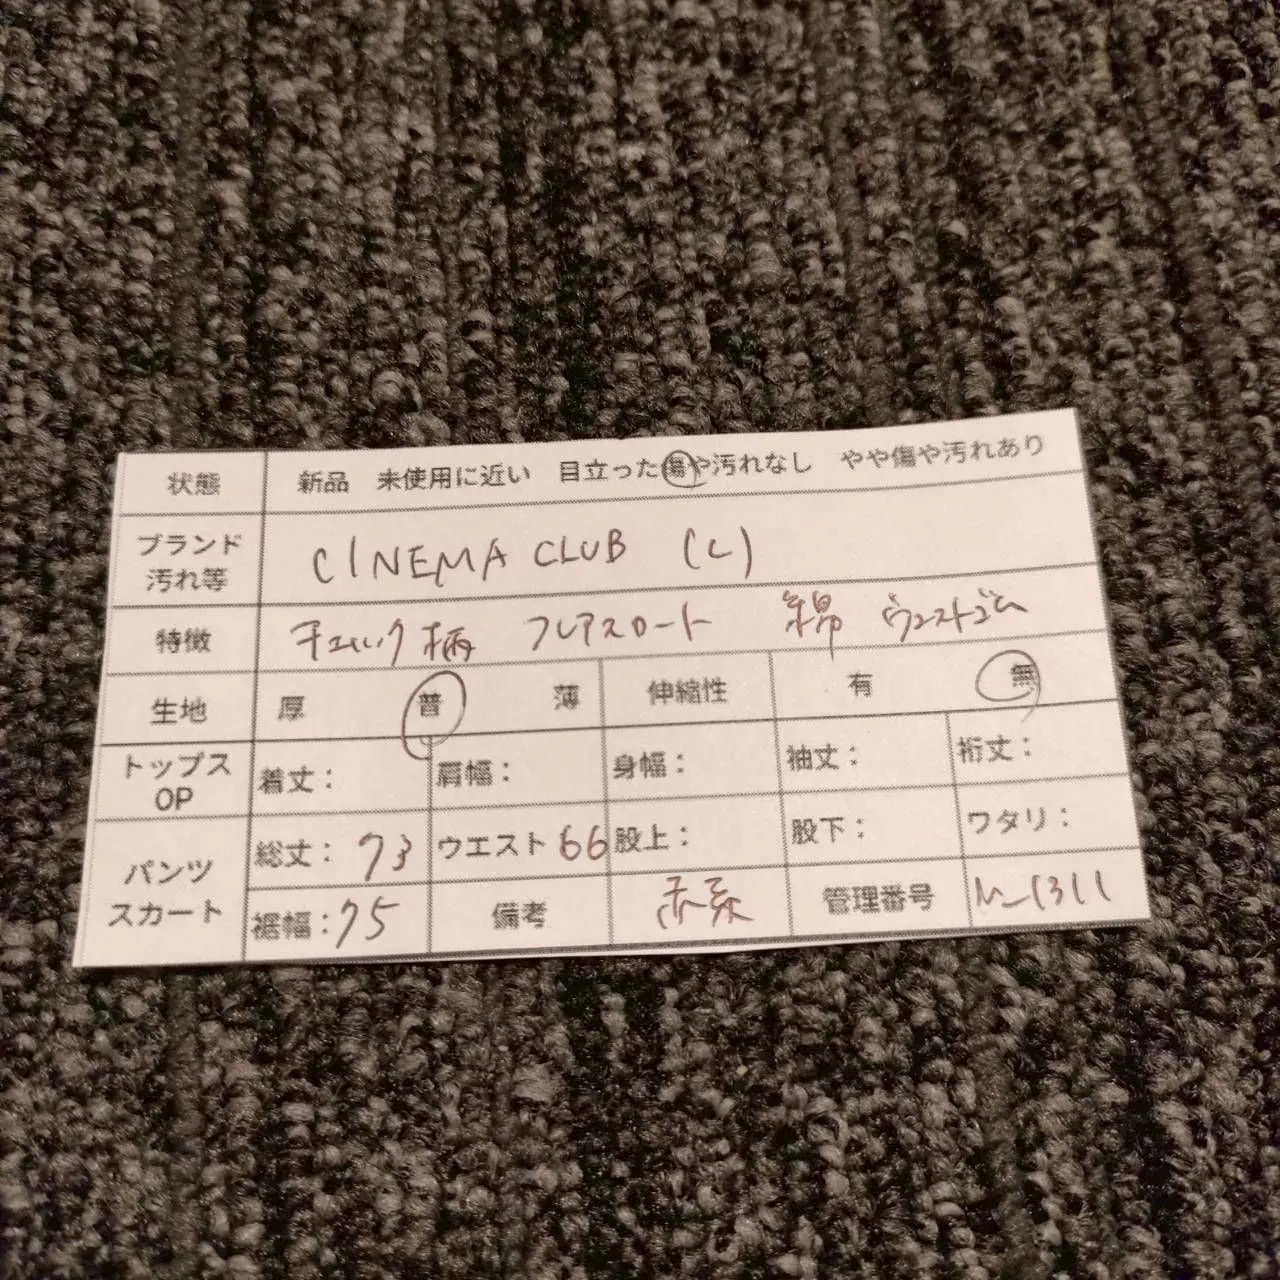 状態 新品 未使用に近い 目立った傷や汚れなし やや傷や汚れあり
ブランド
汚れ等 CINEMA CLUB (L)
特徴 チェック柄 フレアスカート 綿 ウエストゴム
生地 厚 普 薄 伸縮性 有 無
トップス
OP 着丈: 肩幅: 身幅: 袖丈: 裄丈:
パンツ
スカート 総丈: 73 ウエスト 66 股上: 股下: ワタリ:
裾幅: 75 備考 赤系 管理番号 M-1311